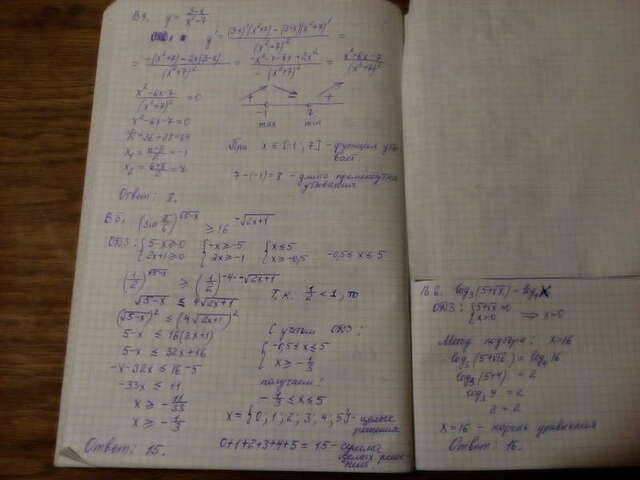 В4. y = (3-x)/(x²+7)
y' = ((3-x)'(x²+7) - (3-x)(x²+7)')/(x²+7)² =
= (-(x²+7) - 2x(3-x))/(x²+7)² = = (x²-6x-7)/(x²+7)²
(x²-6x-7)/(x²+7)² = 0
+ - +
x²-6x-7=0
-1 7
max min
x₁ = = -1
x₂ = = 7
При x ∈ [-1; 7] - функция убывает.
7-(-1)=8 - длина промежутка убывания
Ответ: 8.
В5. (sin π/6)^√(5-x) ≥ 16^(-√(2x+1))
ОДЗ: {5-x≥0 {-x≥-5 {x≤5
{2x+1≥0 {2x≥-1 {x≥-0,5 -0,5≤x≤5
(1/2)^√(5-x) ≥ (1/2)^(-4·-√(2x+1)) Т.к. 1/2 < 1, то
√(5-x) ≤ 4√(2x+1)
(√(5-x))² ≤ (4√(2x+1))²
5-x ≤ 16(2x+1)
5-x ≤ 32x+16
-x-32x ≤ 16-5
-33x ≤ 11
x ≥ -11/33
x ≥ -1/3
С учётом ОДЗ:
{-0,5≤x≤5
{x ≥ -1/3
получаем:
-1/3 ≤ x ≤ 5
x = {0; 1; 2; 3; 4; 5} - целые решения
0+1+2+3+4+5 = 15 - сумма целых решений
Ответ: 15.
В.6. log₃(5+√x) = log₄x
ОДЗ: {5+√x>0
{x>0 ⇒ x>0
Метод подбора: x=16
log₃(5+√16) = log₄16
log₃(5+4) = 2
= 2
2 = 2
x=16 - корень уравнения
Ответ: 16.